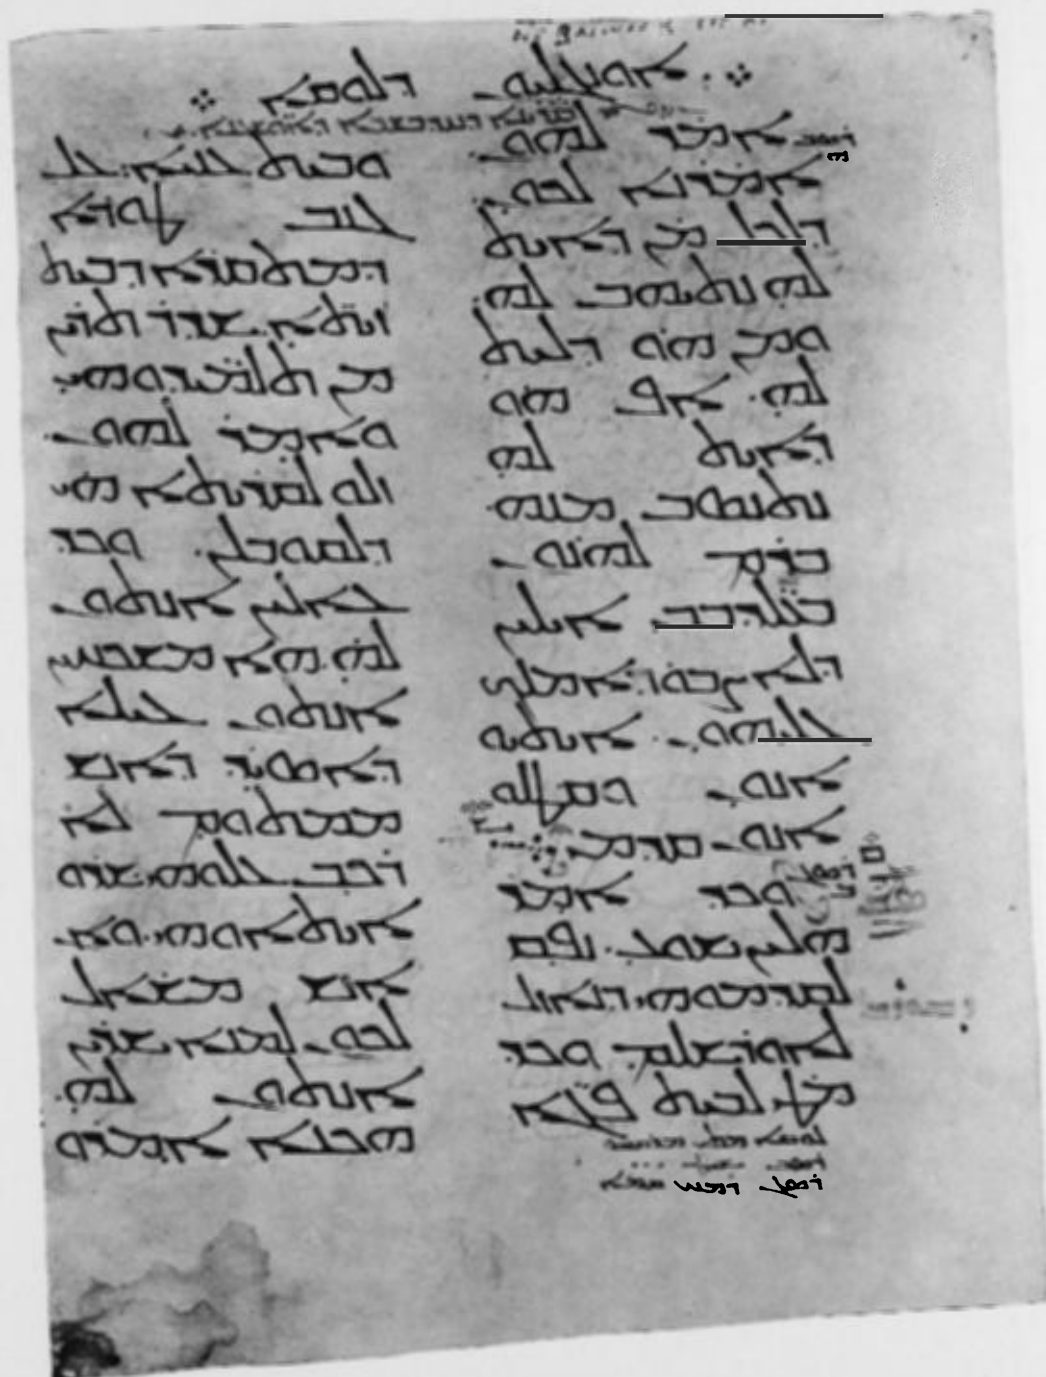 ܐܘܢܓܠܝܘܢ ܕܠܘܩܐ
ܐܡܪ ܠܗܘܢ
ܐܡܪܢܐ ܠܟܘܢ
ܕܠܟܠ ܡܢ ܕܐܝܬ
ܠܗ ܢܬܝܗܒ ܠܗ
ܘܡܢ ܗܘ ܕܠܝܬ
ܠܗ. ܐܦ ܗܘ
ܕܐܝܬ ܠܗ
ܢܬܢܣܒ ܡܢܗ
ܒܪܡ ܠܗܢܘܢ
ܒܥܠܕܒܒܝ ܐܝܠܝܢ
ܕܠܐ ܨܒܘ ܕܐܡܠܟ
ܥܠܝܗܘܢ. ܐܝܬܘ
ܐܢܘܢ ܘܩܛܠܘ
ܐܢܘܢ ܩܕܡܝ
ܘܟܕ ܐܡܪ
ܗܠܝܢ ܝܫܘܥ. ܢܦܩ
ܠܩܕܡܘܗܝ ܕܢܐܙܠ
ܠܐܘܪܫܠܡ ܘܟܕ
ܡܛܝ ܠܒܝܬ ܦܓܐ
ܘܒܝܬ ܥܢܝܐ. ܥܠ
ܓܢܒ ܛܘܪܐ
ܕܡܬܩܪܐ ܕܒܝܬ
ܙܝܬܐ. ܫܕܪ ܬܪܝܢ
ܡܢ ܬܠܡܝܕܘܗܝ
ܘܐܡܪ ܠܗܘܢ
ܙܠܘ ܠܩܪܝܬܐ ܗܝ
ܕܠܩܘܒܠܢ. ܘܟܕ
ܥܐܠܝܢ ܐܢܬܘܢ
ܠܗ. ܗܐ ܡܫܟܚܝܢ
ܐܢܬܘܢ ܥܝܠܐ
ܕܐܣܝܪ ܕܐܢܫ
ܡܡܬܘܡ ܠܐ
ܪܟܒ ܥܠܘܗܝ. ܫܪܘ
ܐܝܬܐܘܗܝ. ܘܐܢ
ܐܢܫ ܡܫܐܠ
ܠܟܘܢ ܠܡܢܐ ܫܪܝܢ
ܐܢܬܘܢ ܠܗ
ܗܟܢܐ ܐܡܪܘ